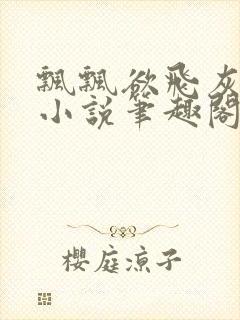 飄飄欲飛灰
小說筆趣閣
櫻庭涼子